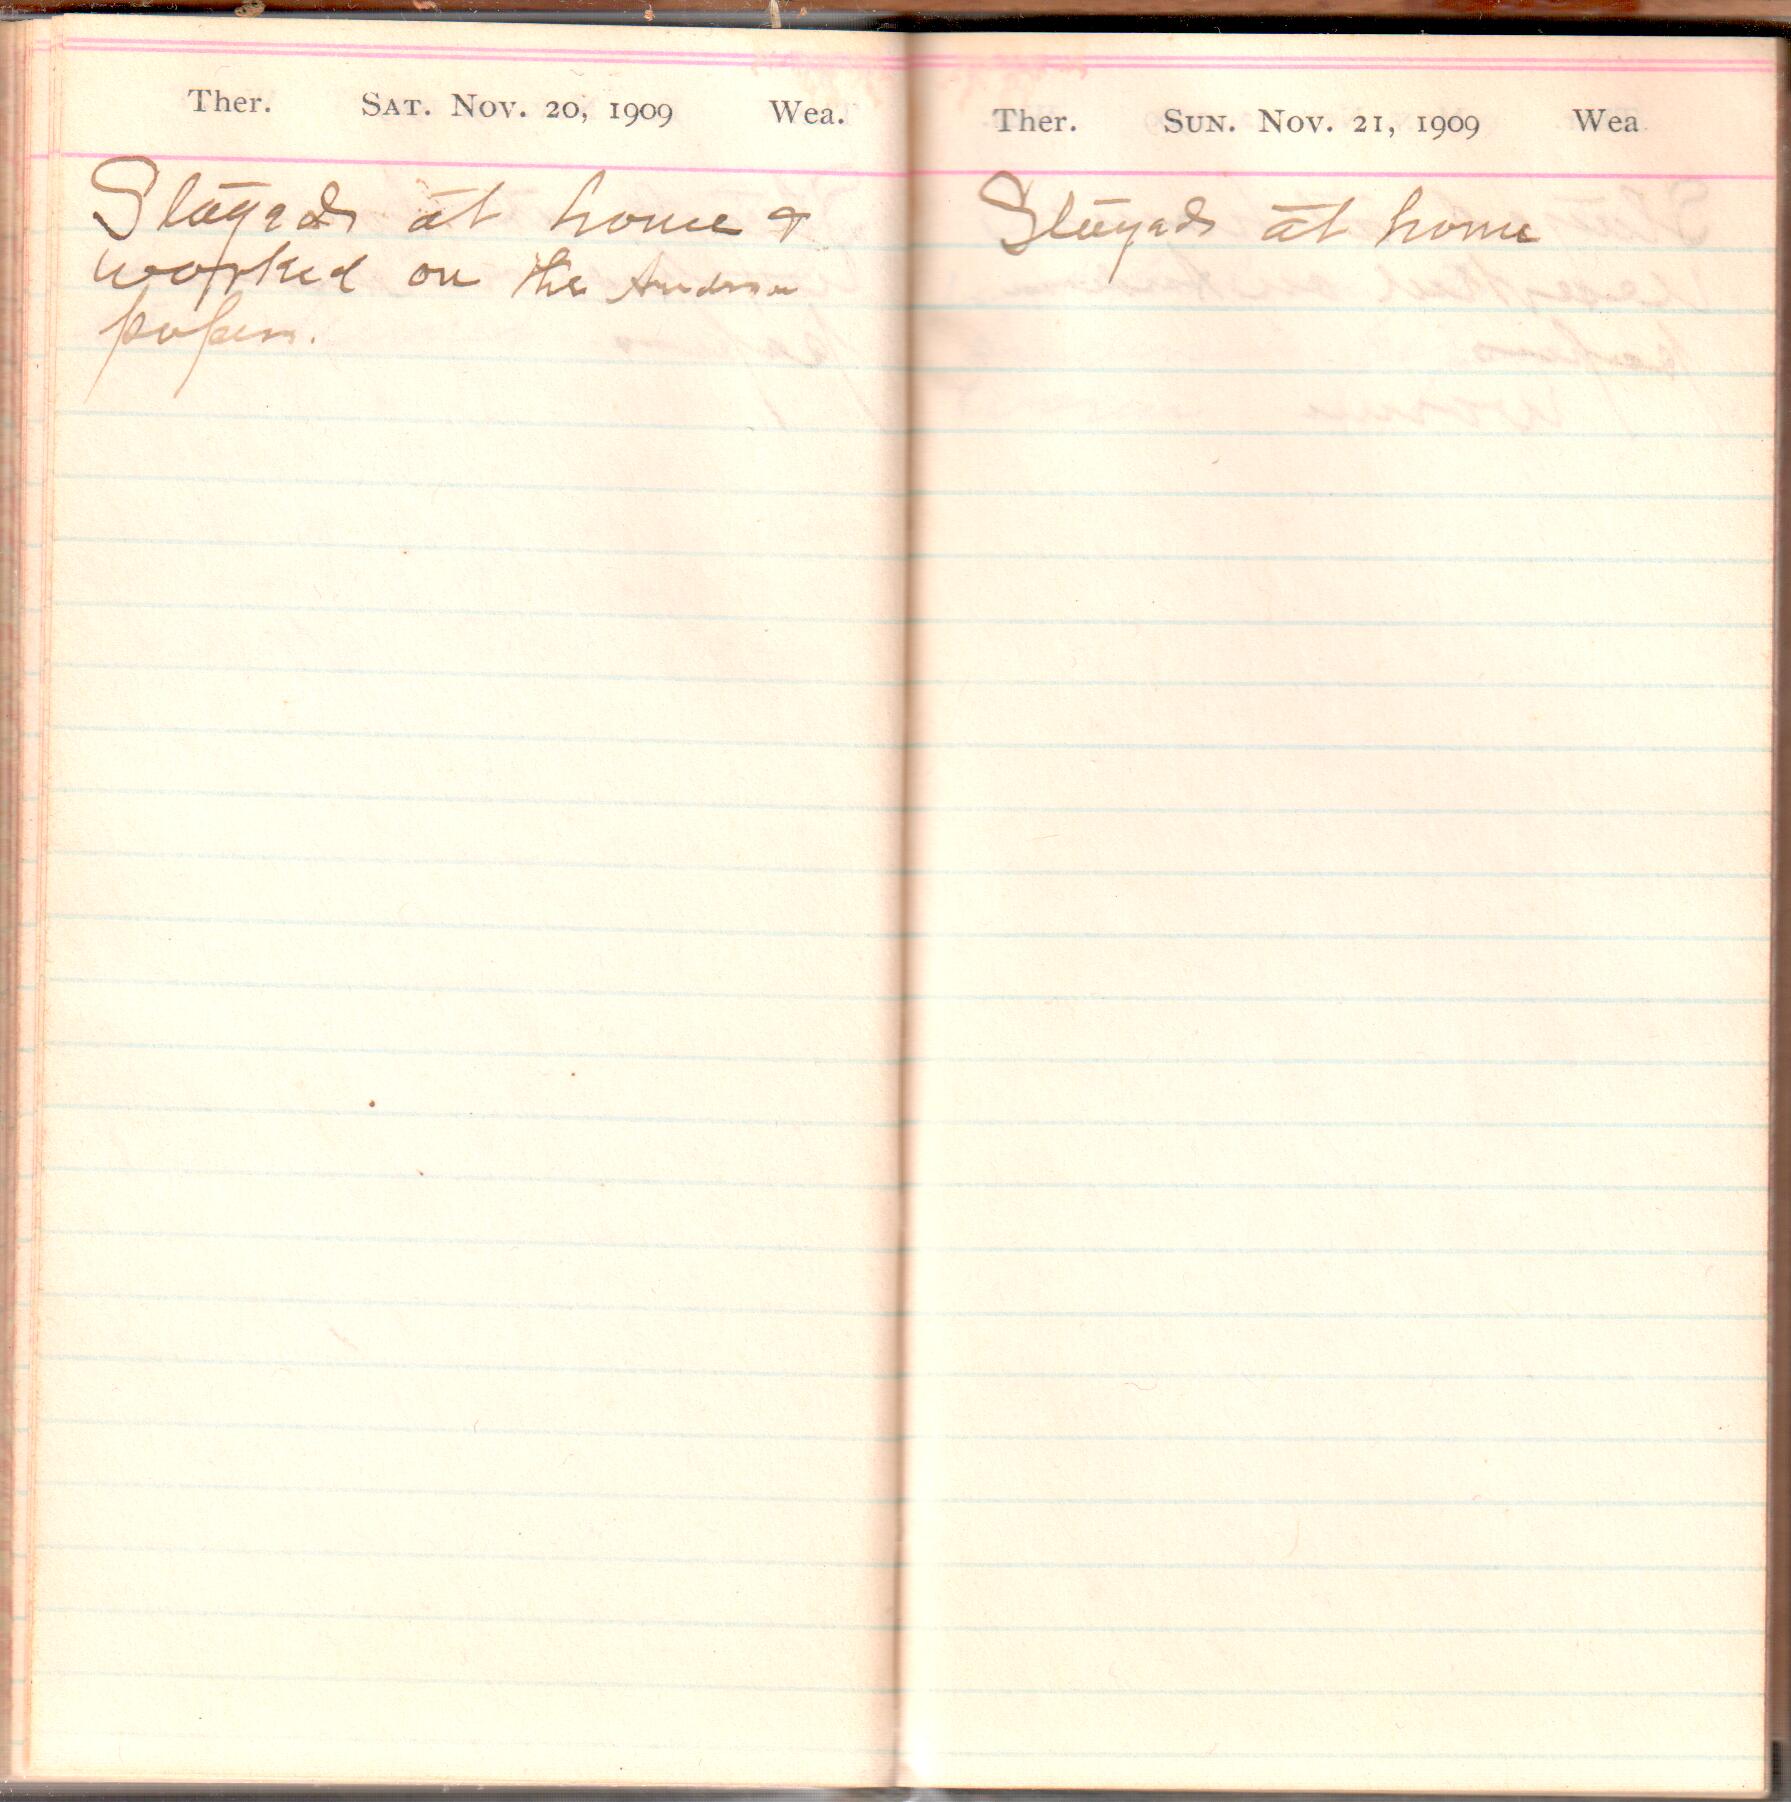 Ther. SAT. NOV. 20, 1909 Wea.
Stayed at home &
worked on the Anderson
papers.
Ther. SUN. NOV. 21, 1909 Wea
Stayed at home